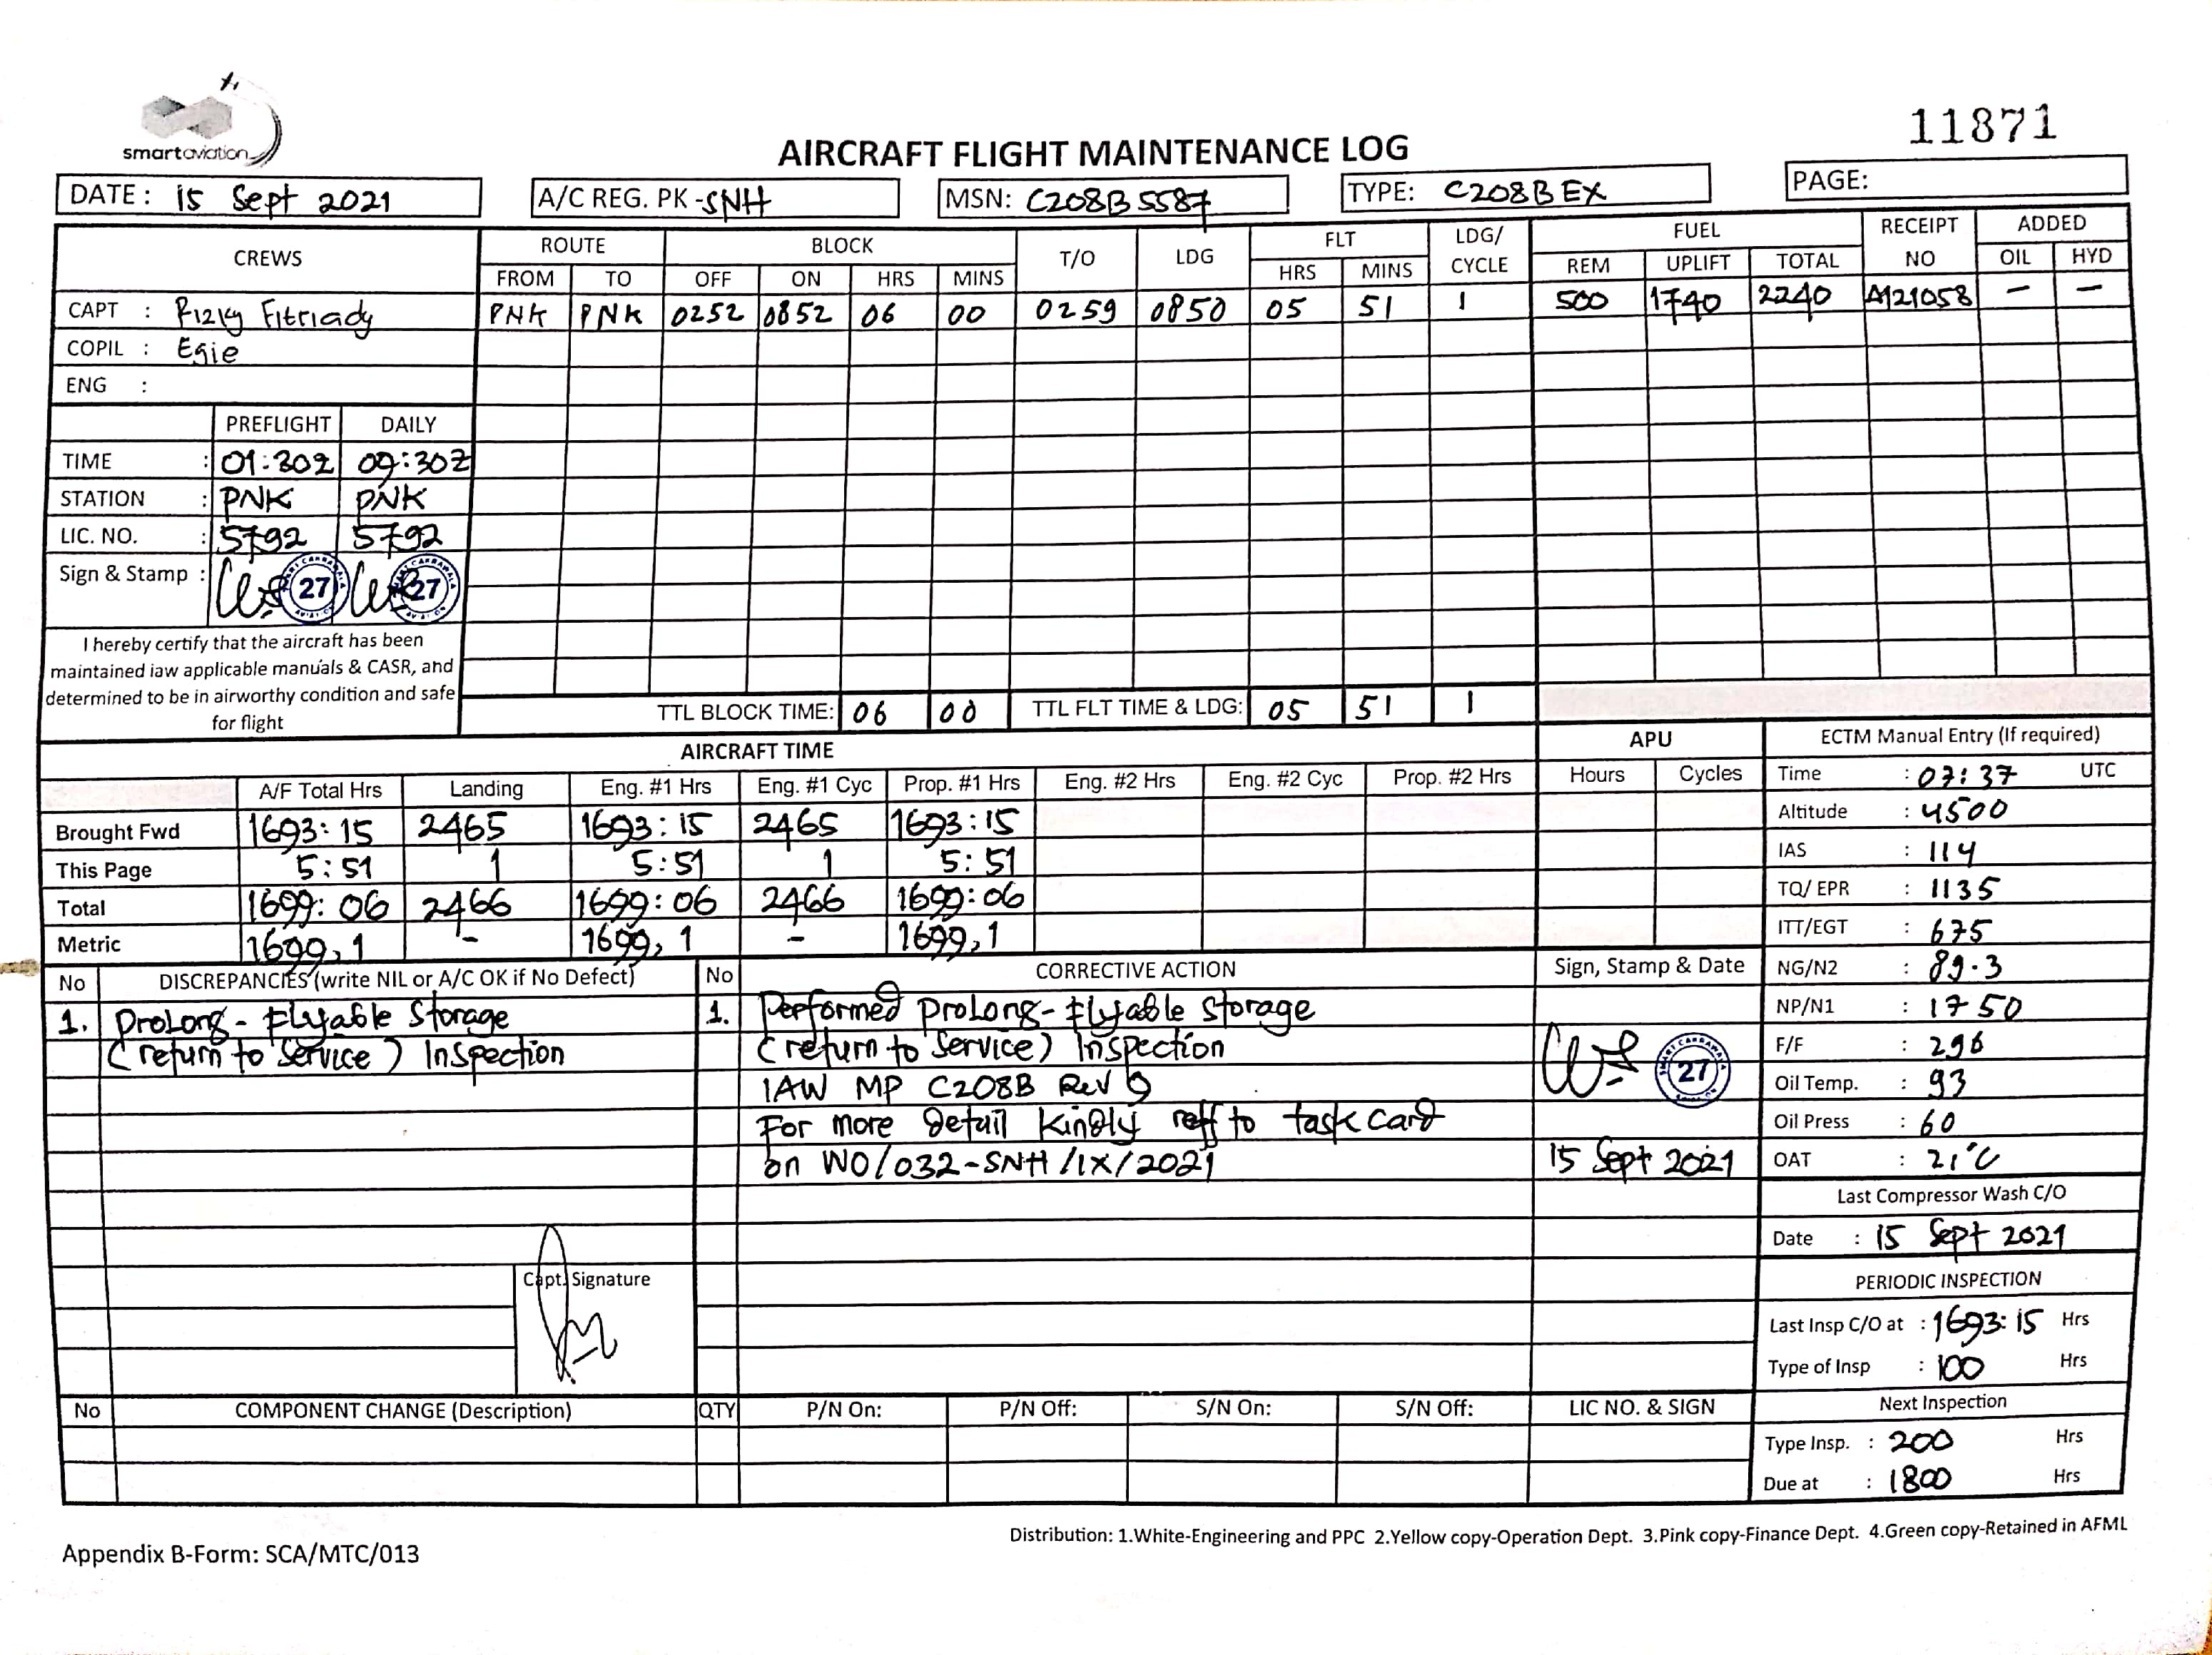 smartaviation
11871
AIRCRAFT FLIGHT MAINTENANCE LOG
DATE: 15 Sept 2021 A/C REG. PK-SNH MSN: C208B5587 TYPE: C208B EX PAGE:
CREWS ROUTE BLOCK T/O LDG FLT LDG/ CYCLE FUEL RECEIPT NO ADDED
FROM TO OFF ON HRS MINS HRS MINS REM UPLIFT TOTAL OIL HYD
CAPT : Rizky Fitriady PNK PNK 0252 0852 06 00 0259 0850 05 51 1 500 1740 2240 A121058 – –
COPIL : Egie
ENG :
PREFLIGHT DAILY
TIME : 01:30Z 09:30Z
STATION : PNK PNK
LIC. NO. : 5792 5792
Sign & Stamp : 27 27
I hereby certify that the aircraft has been
maintained iaw applicable manuals & CASR, and
determined to be in airworthy condition and safe
for flight
TTL BLOCK TIME: 06 00 TTL FLT TIME & LDG: 05 51 1
AIRCRAFT TIME APU ECTM Manual Entry (If required)
A/F Total Hrs Landing Eng. #1 Hrs Eng. #1 Cyc Prop. #1 Hrs Eng. #2 Hrs Eng. #2 Cyc Prop. #2 Hrs Hours Cycles
Brought Fwd 1693:15 2465 1693:15 2465 1693:15
This Page 5:51 1 5:51 1 5:51
Total 1699:06 2466 1699:06 2466 1699:06
Metric 1699,1 – 1699,1 – 1699,1
Time : 07:37 UTC
Altitude : 4500
IAS : 114
TQ/ EPR : 1135
ITT/EGT : 675
NG/N2 : 89.3
NP/N1 : 1750
F/F : 296
Oil Temp. : 93
Oil Press : 60
OAT : 21°C
Last Compressor Wash C/O
Date : 15 Sept 2021
PERIODIC INSPECTION
Last Insp C/O at : 1693:15 Hrs
Type of Insp : 100 Hrs
Next Inspection
Type Insp. : 200 Hrs
Due at : 1800 Hrs
No DISCREPANCIES (write NIL or A/C OK if No Defect)
1. Prolong - Flyable Storage
(return to Service) Inspection
Capt. Signature
No CORRECTIVE ACTION Sign, Stamp & Date
1. Performed Prolong - Flyable Storage
(return to Service) Inspection
IAW MP C208B Rev 9
For more Detail Kindly reff to task card
on WO/032-SNH/IX/2021
27
15 Sept 2021
No COMPONENT CHANGE (Description) QTY P/N On: P/N Off: S/N On: S/N Off: LIC NO. & SIGN
Distribution: 1.White-Engineering and PPC 2.Yellow copy-Operation Dept. 3.Pink copy-Finance Dept. 4.Green copy-Retained in AFML
Appendix B-Form: SCA/MTC/013